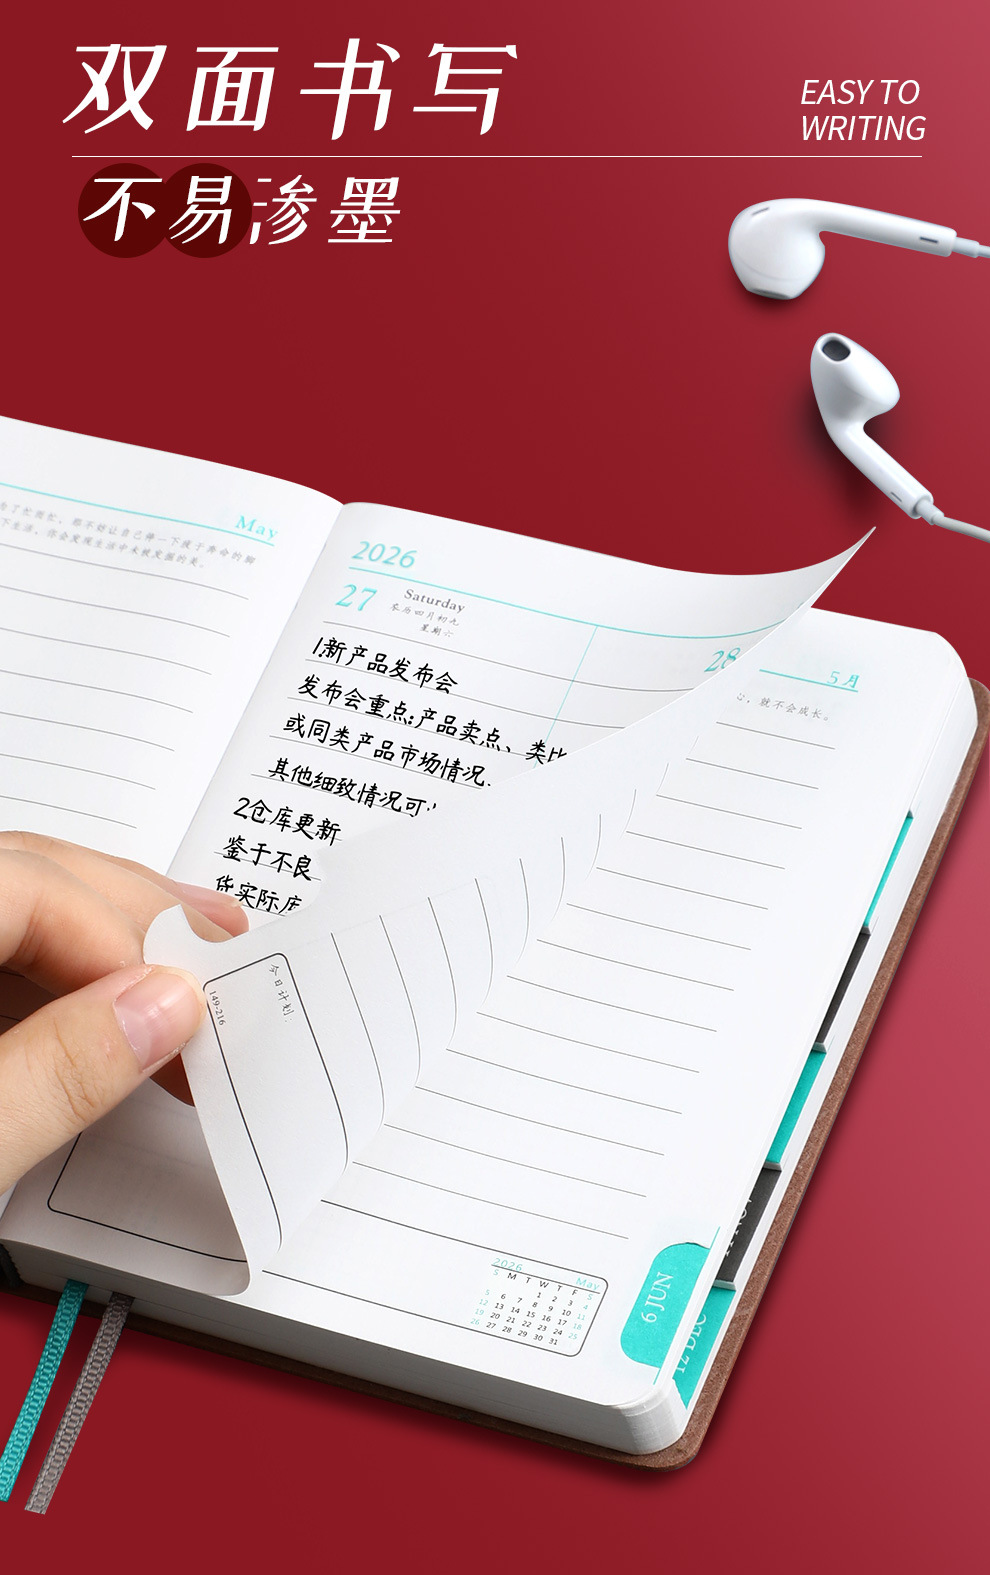 双面书写
EASY TO
WRITING
不易渗墨
May
下生活，你会发现生活中未被发掘的美。
2026
27 Saturday
星期六
28
5月
心，就不会成长。
1新产品发布会
发布会重点:产品卖点、类比
或同类产品市场情况.
其他细致情况可
2仓库更新
鉴于不良
货实际库
今日计划:
149-216
2026 May
S M T W T F S
1 2 3 4
5 6 7 8 9 10 11
12 13 14 15 16 17 18
19 20 21 22 23 24 25
26 27 28 29 30 31
6 JUN
12 DEC